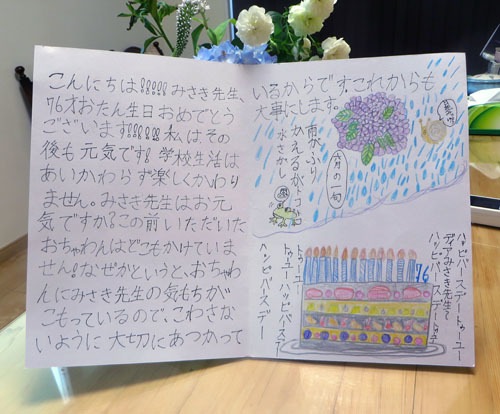 こんにちは!!!!!みさき先生、
76才おたん生日おめでとう
ございます!!!!!!私は、その
後も元気です!学校生活は
あいかわらず楽しくかわり
ません。みさき先生はお元
気ですか?この前いただいた
おちゃわんはどこもかけていま
せん!なぜかというと、おちゃわ
んにみさき先生の気もちが
こもっているので、こわさな
いように大切にあつかって
いるからです。これからも
大事にします。
六月の一句
雨がふり
かえるがピョコ
水さがし
76
ハッピバースデートゥーユー
ディアみさき先生~
ハッピバースデートゥユー
トゥーユーハッピバースデー
ハッピバースデー